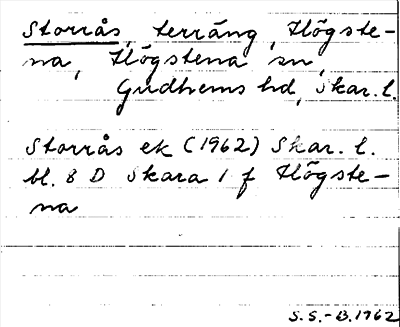 Storrås, terräng, Högste-
na, Högstena sn,
Gudhems hd, Skar. l.
Storrås ek (1962) Skar. l.
bl. 8 D Skara 1 f Högste-
na
S.S.-B. 1962